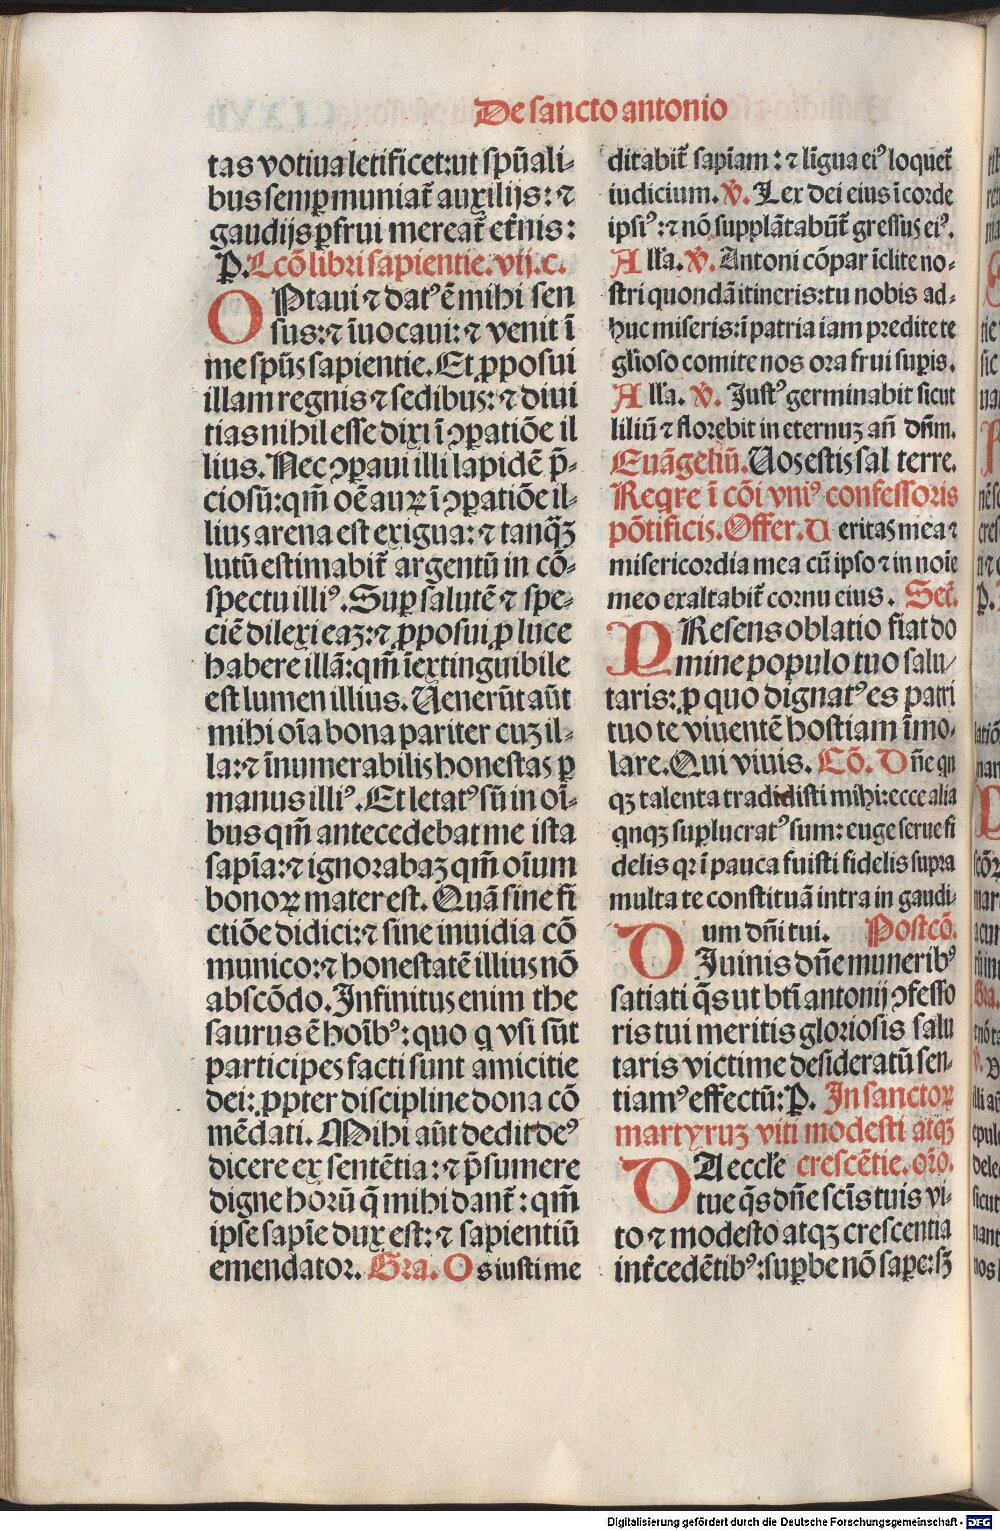 De sancto antonio
tas votiua letificet:ut spūali-
bus semꝑ muniat᷑ auxilijs: ⁊
gaudijs ꝑfrui mereat᷑ et᷑nis:
P. Lcō libri sapientie. vij. c.
OPtaui ⁊ datꝰ ē mihi sen
sus: ⁊ īuocaui: ⁊ venit ī
me spūs sapientie. Et ꝓposui
illam regnis ⁊ sedibus: ⁊ diui
tias nihil esse dixi ī ꝯꝑatiōe il
lius. Nec ꝯꝑaui illi lapidē p̄-
ciosū: qm̄ oē auꝝ ī ꝯꝑatiōe il-
lius arena est exigua: ⁊ tanq̄ꝫ
lutū estimabit᷑ argentū in cō-
spectu illiꝰ. Suꝑ salutē ⁊ spe-
ciē dilexi eaꝫ: ⁊ ꝓposui ꝓ luce
habere illā: qm̄ īextinguibile
est lumen illius. Uenerūt aūt
mihi oīa bona pariter cuꝫ il-
la: ⁊ īnumerabilis honestas ꝑ
manus illiꝰ. Et letatꝰ sū in oī-
bus qm̄ antecedebat me ista
sapīa: ⁊ ignorabaꝫ qm̄ oīum
bonoꝝ mater est. Quā sine fi
ctiōe didici: ⁊ sine inuidia cō
munico: ⁊ honestatē illius nō
abscōdo. Infinitus enim the
saurus ē hoībꝰ: quo q vsi sūt
participes facti sunt amicitie
dei: ꝓpter discipline dona cō
mēdati. Mihi aūt dedit deꝰ
dicere ex sentētia: ⁊ p̄sumere
digne horū q̄ mihi dant᷑: qm̄
ipse sapīe dux est: ⁊ sapientiū
emendator. Gra. Os iusti me
ditabit᷑ sapīam: ⁊ līgua eiꝰ loquet᷑
iudicium. V̄. Lex dei eius ī corde
ipsiꝰ: ⁊ nō supplātabūt᷑ gressus eiꝰ.
Allꝰa. V̄. Antoni cōpar īclite no-
stri quondā itineris: tu nobis ad-
huc miseris: ī patria iam predite te
gl̄ioso comite nos ora frui suꝑis.
Alla. V̄. Justꝰ germinabit sicut
liliū ⁊ florebit in eternuꝫ an̄ dn̄m.
Euāgeliū. Uos estis sal terre.
Reqre ī cōi vniꝰ confessoris
pōtificis. Offer. Ueritas mea ⁊
misericordia mea cū ipso ⁊ in noīe
meo exaltabit᷑ cornu eius. Sec᷑.
PResens oblatio fiat do
mine populo tuo salu-
taris: ꝓ quo dignatꝰ es patri
tuo te viuentē hostiam īmo-
lare. Qui viuis. Cō. Dn̄e qn
qꝫ talenta tradidisti mihi: ecce alia
qnqꝫ suꝑlucratꝰ sum: euge serue fi
delis qꝛ ī pauca fuisti fidelis supra
multa te constituā intra in gaudi-
um dn̄i tui. Postcō.
DIuinis dn̄e muneribꝰ
satiati q̄s ut bt̄i antonij ꝯfesso
ris tui meritis gloriosis salu
taris victime desideratū sen-
tiamꝰ effectū: P. In sanctoꝝ
martyruꝫ viti modesti atqꝫ
crescētie. or̄o.
DA eccl̄e
tue q̄s dn̄e sc̄is tuis vi-
to ⁊ modesto atqꝫ crescentia
int᷑cedētibꝰ: suꝑbe nō sapere: sꝫ
Digitalisierung gefördert durch die Deutsche Forschungsgemeinschaft - DFG